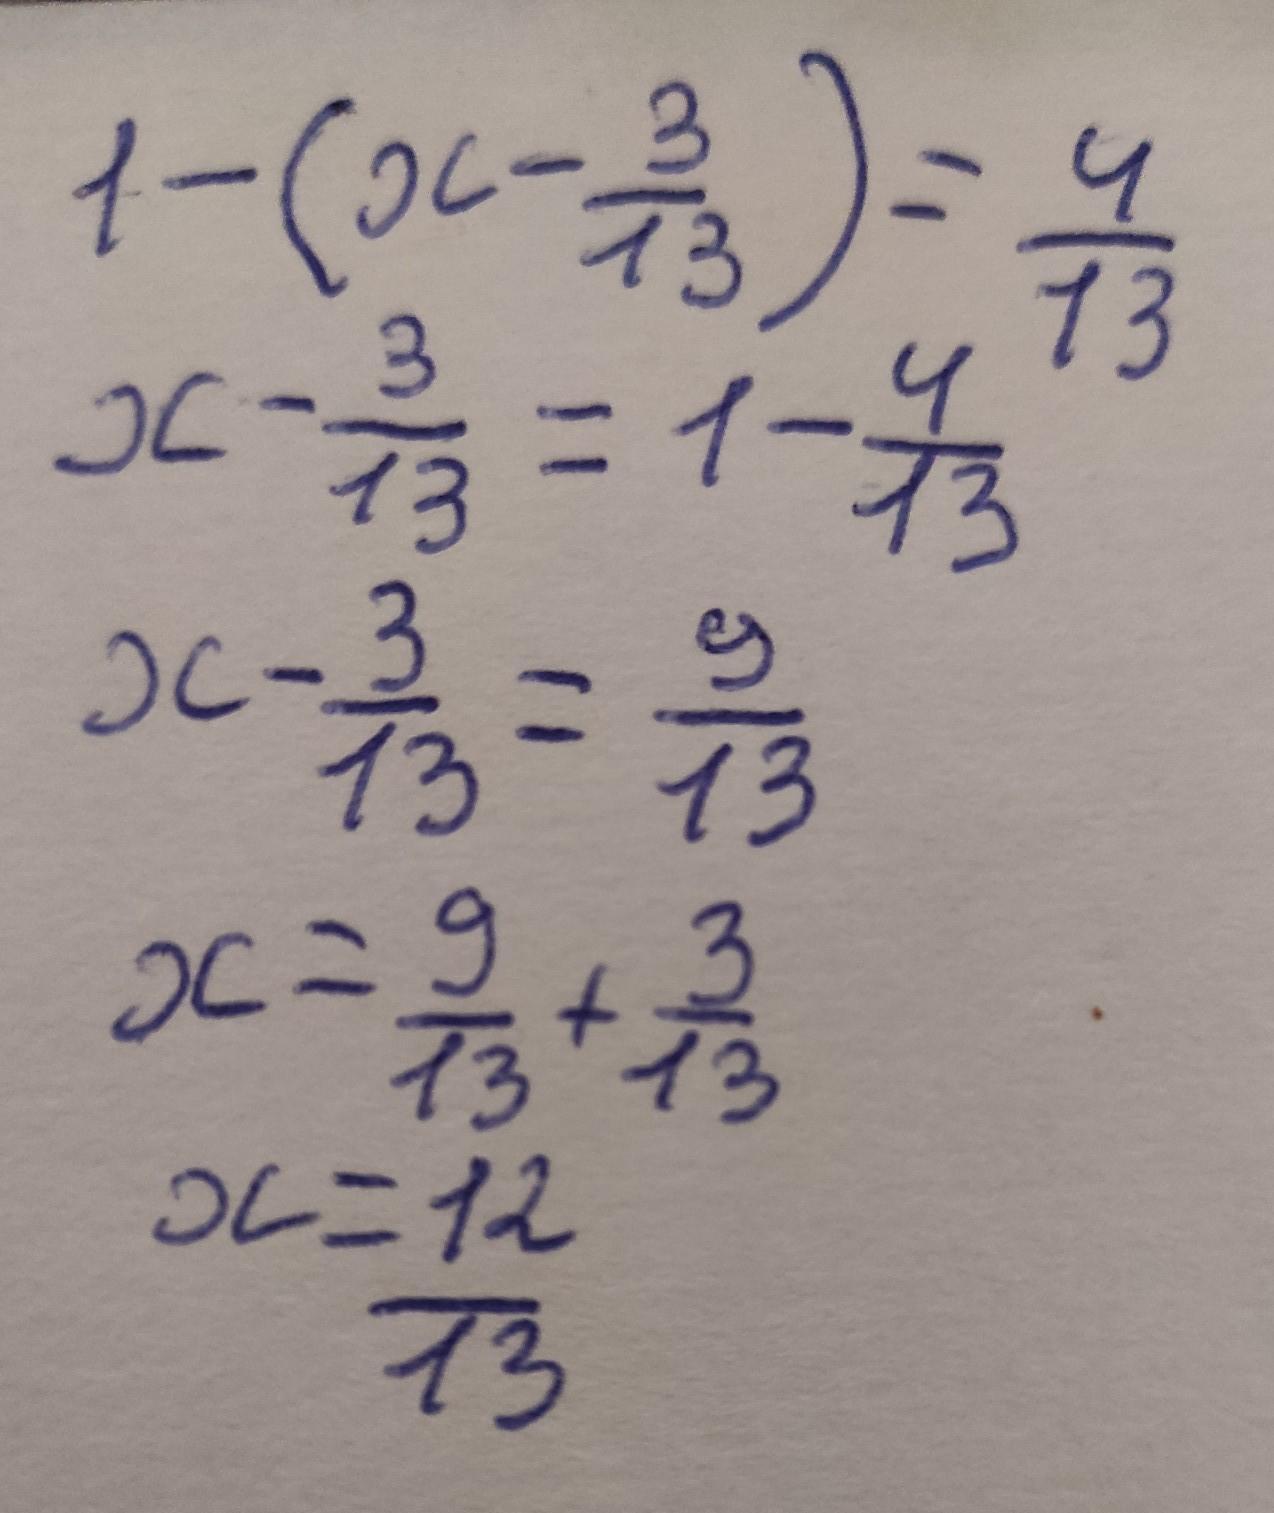 1 - (x - 3/13) = 4/13
x - 3/13 = 1 - 4/13
x - 3/13 = 9/13
x = 9/13 + 3/13
x = 12/13